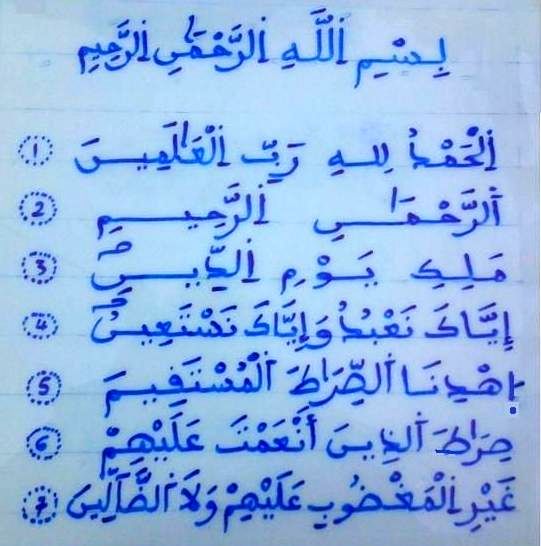 بِسْمِ اِ۬للَّهِ اِ۬لرَّحْمَٰنِ اِ۬لرَّحِيمِ
اَ۬لْحَمْدُ لِلهِ رَبِّ اِ۬لْعَٰلَمِينَ 1
اَ۬لرَّحْمَٰنِ اِ۬لرَّحِيمِ 2
مَلِكِ يَوْمِ اِ۬لدِّينِ 3
إِيَّاكَ نَعْبُدُ وَإِيَّاكَ نَسْتَعِينُ 4
اِ۪هْدِنَا اَ۬لصِّرَٰطَ اَ۬لْمُسْتَقِيمَ 5
صِرَٰطَ اَ۬لذِينَ أَنْعَمْتَ عَلَيْهِمْ 6
غَيْرِ اِ۬لْمَغْضُوبِ عَلَيْهِمْ وَلَا اَ۬لضَّآلِّينَ 7